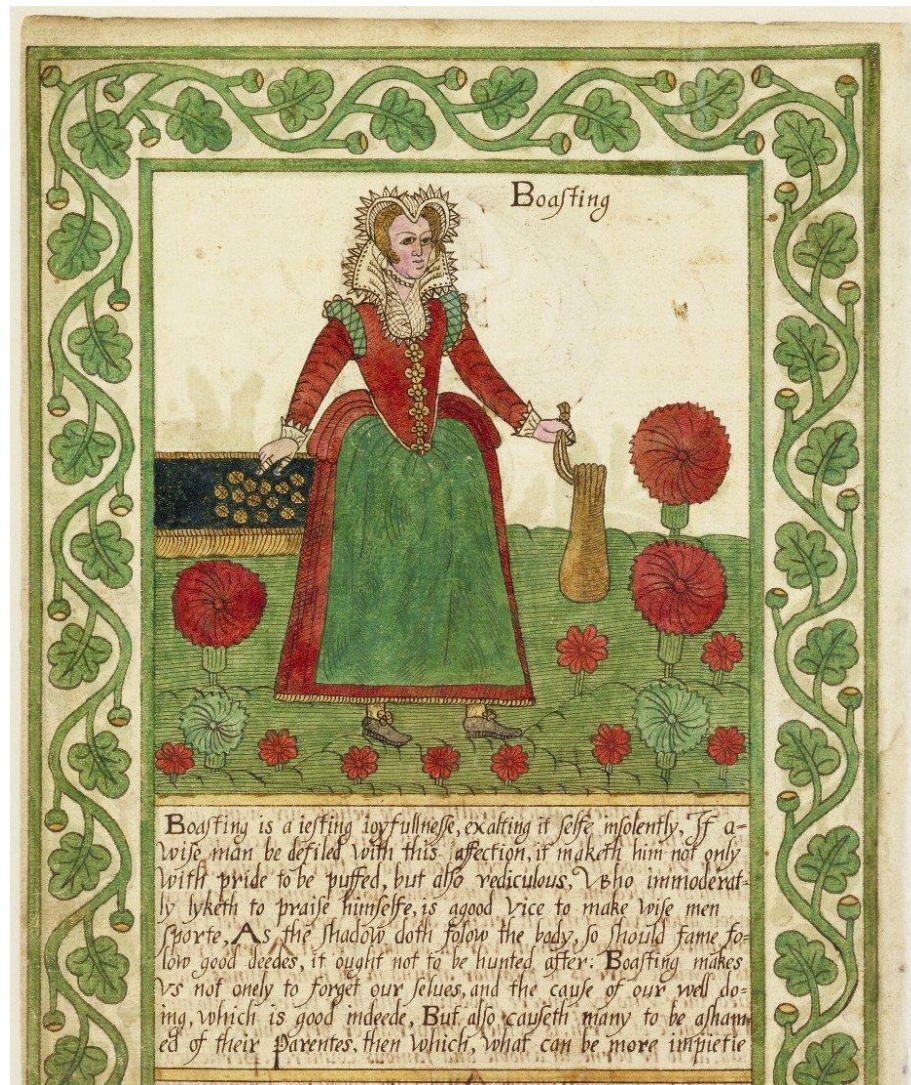 Boaſting
Boaſting is a ieſting ioyfullneſſe, exalting it ſelfe inſolently, If a=
wiſe man be defiled with this affection, it maketh him not only
with pride to be puffed, but alſo rediculous, Who immoderat=
ly lyketh to praiſe himſelfe, is agood vice to make wiſe men
ſporte, As the ſhadow doth folow the body, ſo ſhould fame fo=
low good deedes, it ought not to be hunted after: Boaſting makes
vs not onely to forget our ſelues, and the cauſe of our well do=
ing, which is good indeede, But alſo cauſeth many to be aſham=
ed of their Parentes, then which, what can be more impietie